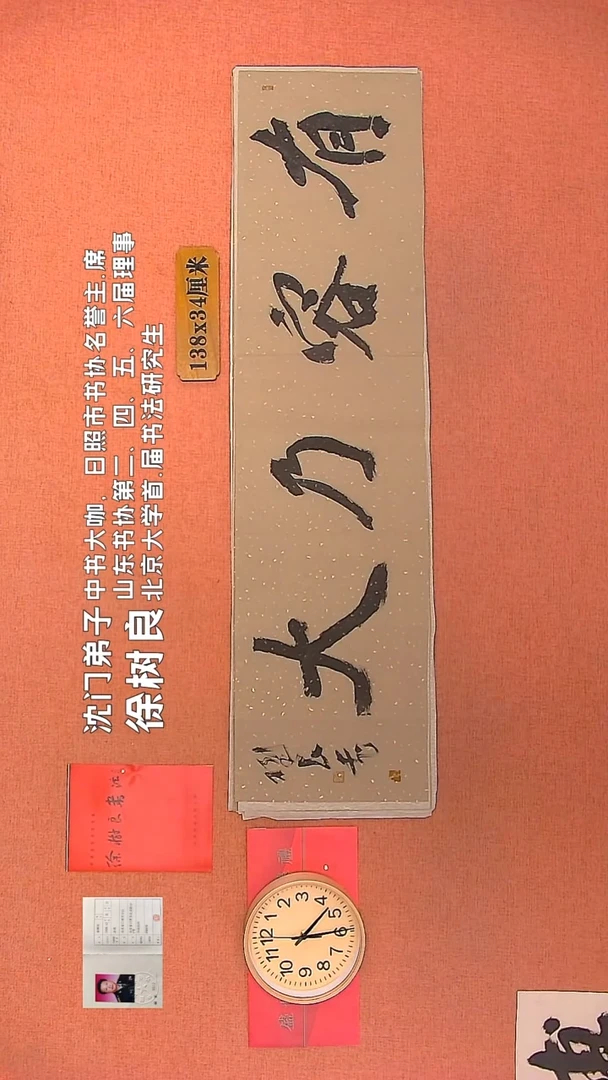 沈门弟子 中书大咖、日照市书协名誉主.席
山东书协第二、四、五、六届理事
徐树良 北京大学首.届书法研究生
138x34厘米
有容乃大
树良书
徐树良书法
12
1
2
3
4
5
6
7
8
9
10
11